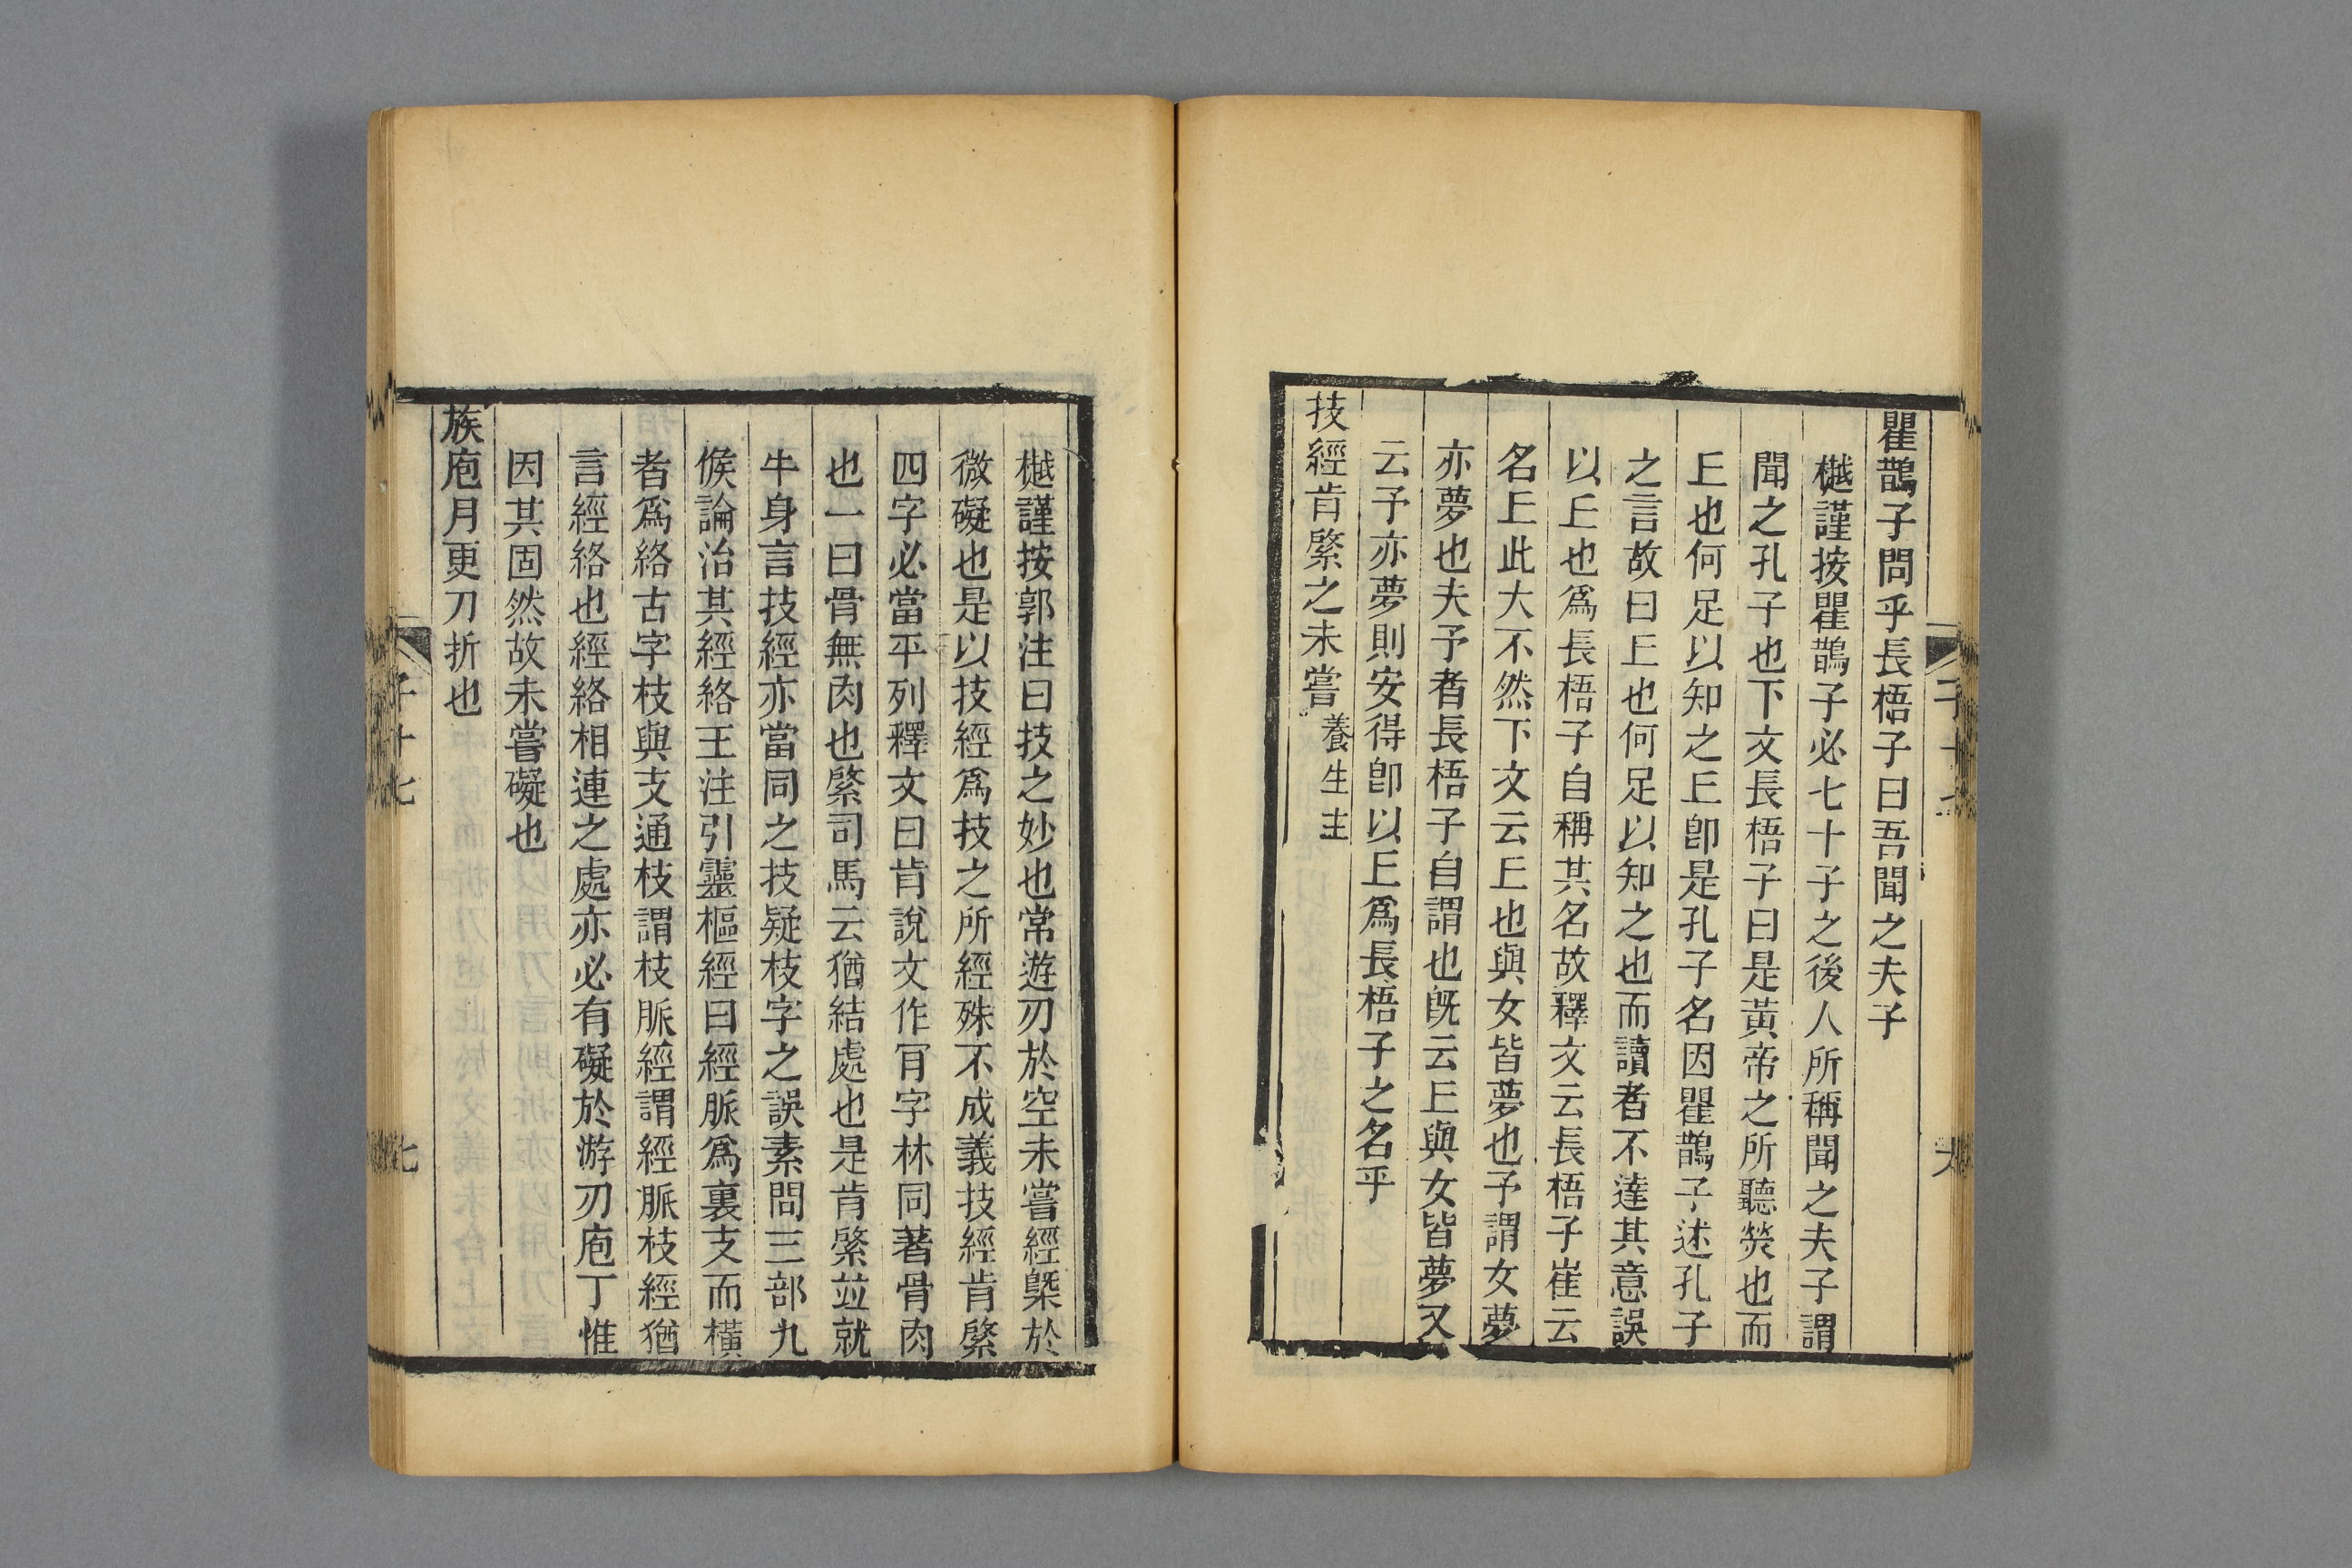 瞿鵲子問乎長梧子曰吾聞之夫子
樾謹按瞿鵲子必七十子之後人所稱聞之夫子謂
聞之孔子也下文長梧子曰是黃帝之所聽熒也而
𠀉也何足以知之𠀉卽是孔子名因瞿鵲子述孔子
之言故曰𠀉也何足以知之也而讀者不達其意誤
以𠀉也爲長梧子自稱其名故釋文云長梧子崔云
名𠀉此大不然下文云𠀉也與女皆夢也予謂女夢
亦夢也夫予者長梧子自謂也旣云𠀉與女皆夢又
云予亦夢則安得卽以𠀉爲長梧子之名乎
技經肯綮之未嘗 養生主
樾謹按郭注曰技之妙也常遊刃於空未嘗經槩於
微礙也是以技經爲技之所經殊不成義技經肯綮
四字必當平列釋文曰肯說文作肎字林同著骨肉
也一曰骨無肉也綮司馬云猶結處也是肯綮竝就
牛身言技經亦當同之技疑枝字之誤素問三部九
候論治其經絡王注引靈樞經曰經脈爲裏支而橫
者爲絡古字枝與支通枝謂枝脈經謂經脈枝經猶
言經絡也經絡相連之處亦必有礙於游刃庖丁惟
因其固然故未嘗礙也
族庖月更刀折也
子十七
七